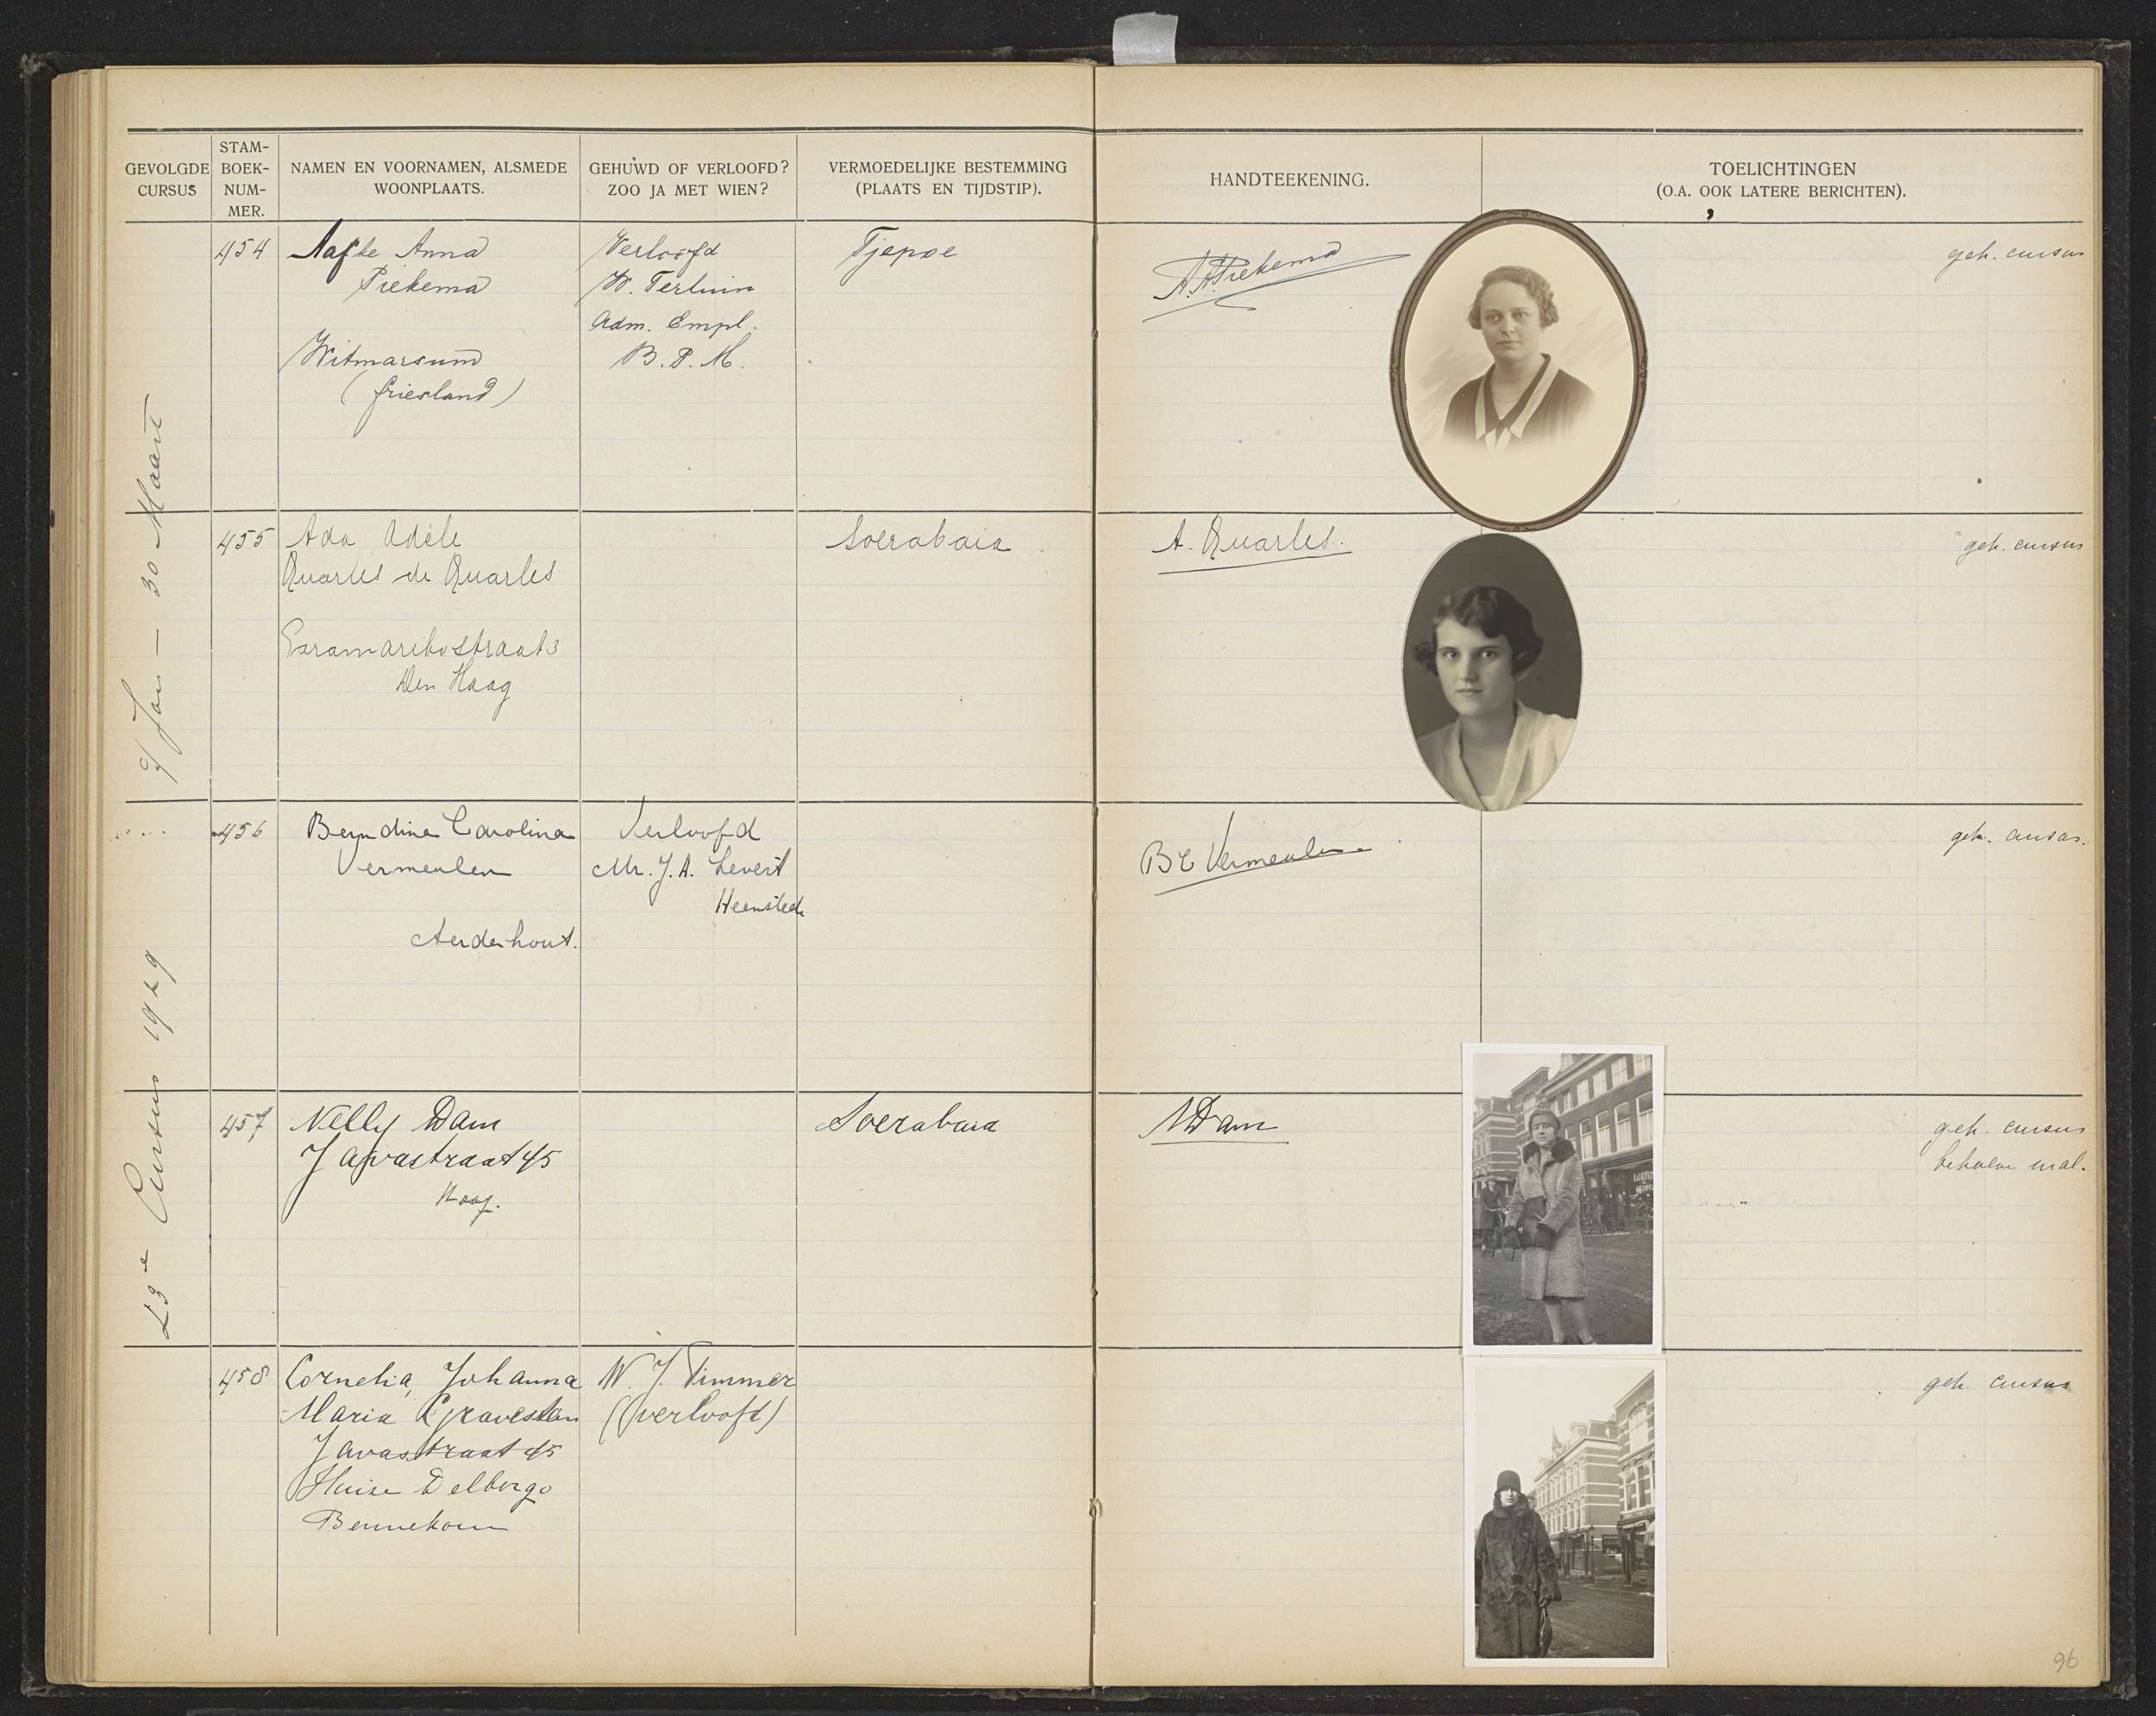 GEVOLGDE CURSUS
STAM-BOEK-NUM-MER.
NAMEN EN VOORNAMEN, ALSMEDE WOONPLAATS.
GEHUWD OF VERLOOFD? ZOO JA MET WIEN?
VERMOEDELIJKE BESTEMMING (PLAATS EN TIJDSTIP).
HANDTEEKENING.
TOELICHTINGEN (O.A. OOK LATERE BERICHTEN).
23e Cursus 1929
9 Jan — 30 Maart
454
Aafke Anna
Piekema
Witmarsum
(Friesland)
Verloofd
W. Terluin
Adm. Empl.
B.P.M.
Tjepoe
A.A. Piekema
geh. cursus
455
Ada Adèle
Quarles de Quarles
Paramaribostraat 3
Den Haag
Soerabaia
A. Quarles.
geh. cursus
456
Berndina Carolina
Vermeulen
Aerdenhout.
Verloofd
Mr. J. A. Levert
Heemstede
BC Vermeulen
geh. cursus.
457
Nelly Dam
Javastraat 45
Haag.
Soerabaia
NDam
geh. cursus
behalve mal.
458
Cornelia, Johanna
Maria Gravestein
Javastraat 45
Huize Delborgo
Bennekom
W. J. Timmer
(verloofd)
geh. cursus
96